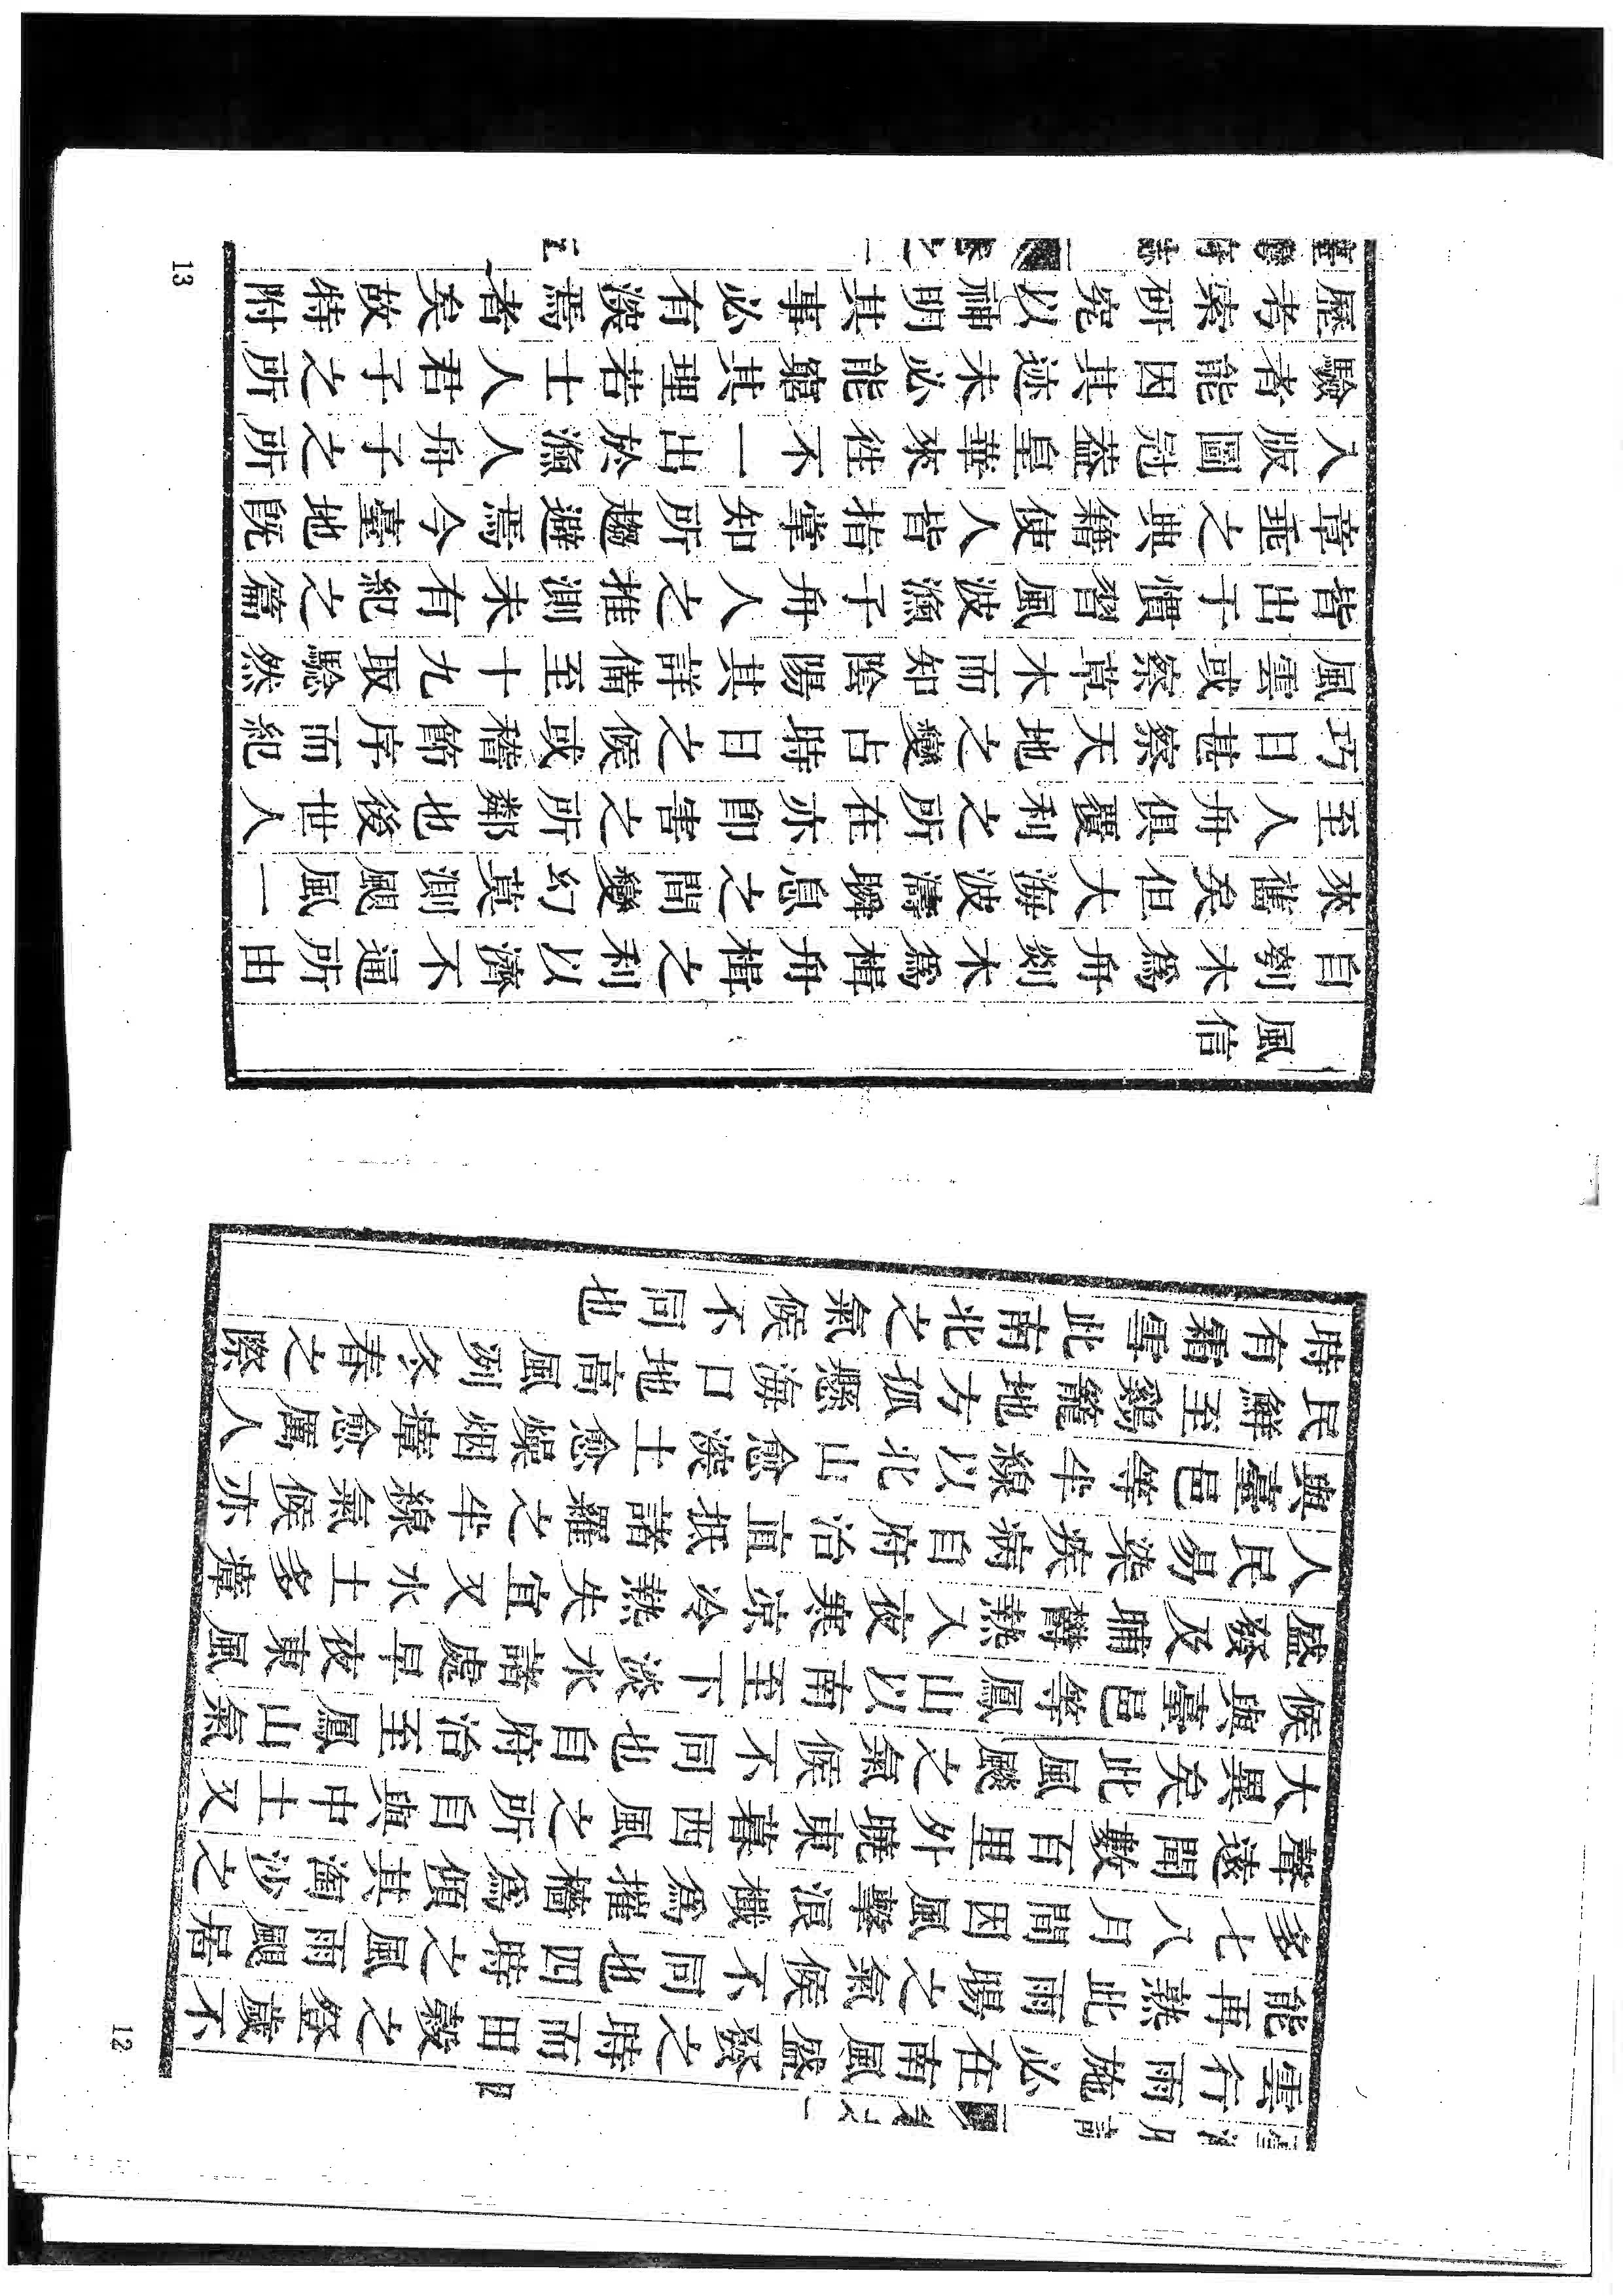 雲行雨施必在南風盛發之時而田穀之登歲不
能再熟此雨暘之氣候不同也四時之風雨颶居
多七八月間因風擊浪檥爲摧檣爲傾其衝沙之
聲遠聞數百里外曉東暮西風之所自與中土又
大異矣此風颷之氣候不同也自府治至鳳山氣
候與臺邑等鳳山以南至下淡水諸處早夜東風
盛發及晡鬱熱入夜寒涼冷熱失宜又水土多瘴
人民易染疾病自府治直抵諸羅之半線氣候亦
與臺邑等半線以北山愈深土愈燥烟瘴愈厲人
民鮮至鷄籠地方孤懸海口地高風冽冬春之際
時有霜雪此南北之氣候不同也
12
風信
自刳木爲舟剡木爲楫舟楫之利以濟不通所由
來舊矣但大海波濤瞬息之間變幻莫測颶風一
至人舟俱覆利之所在亦卽害之所鄰也後世人
巧日甚察天地之變占時日之候或稽節序而紀
風雲或察草木而知陰陽其詳備至十九取驗然
皆出于慣習風波瀚子舟人之推測未有紀之篇
章垂之典籍使人皆指掌知所趨避焉今臺地旣
入版圖冠蓋皇華來往不一出於瀚人舟子之所
驗者能因其迹未必能軆其理若士人君子之所
歷考索研究以補明其事必有深焉者矣故特附
13